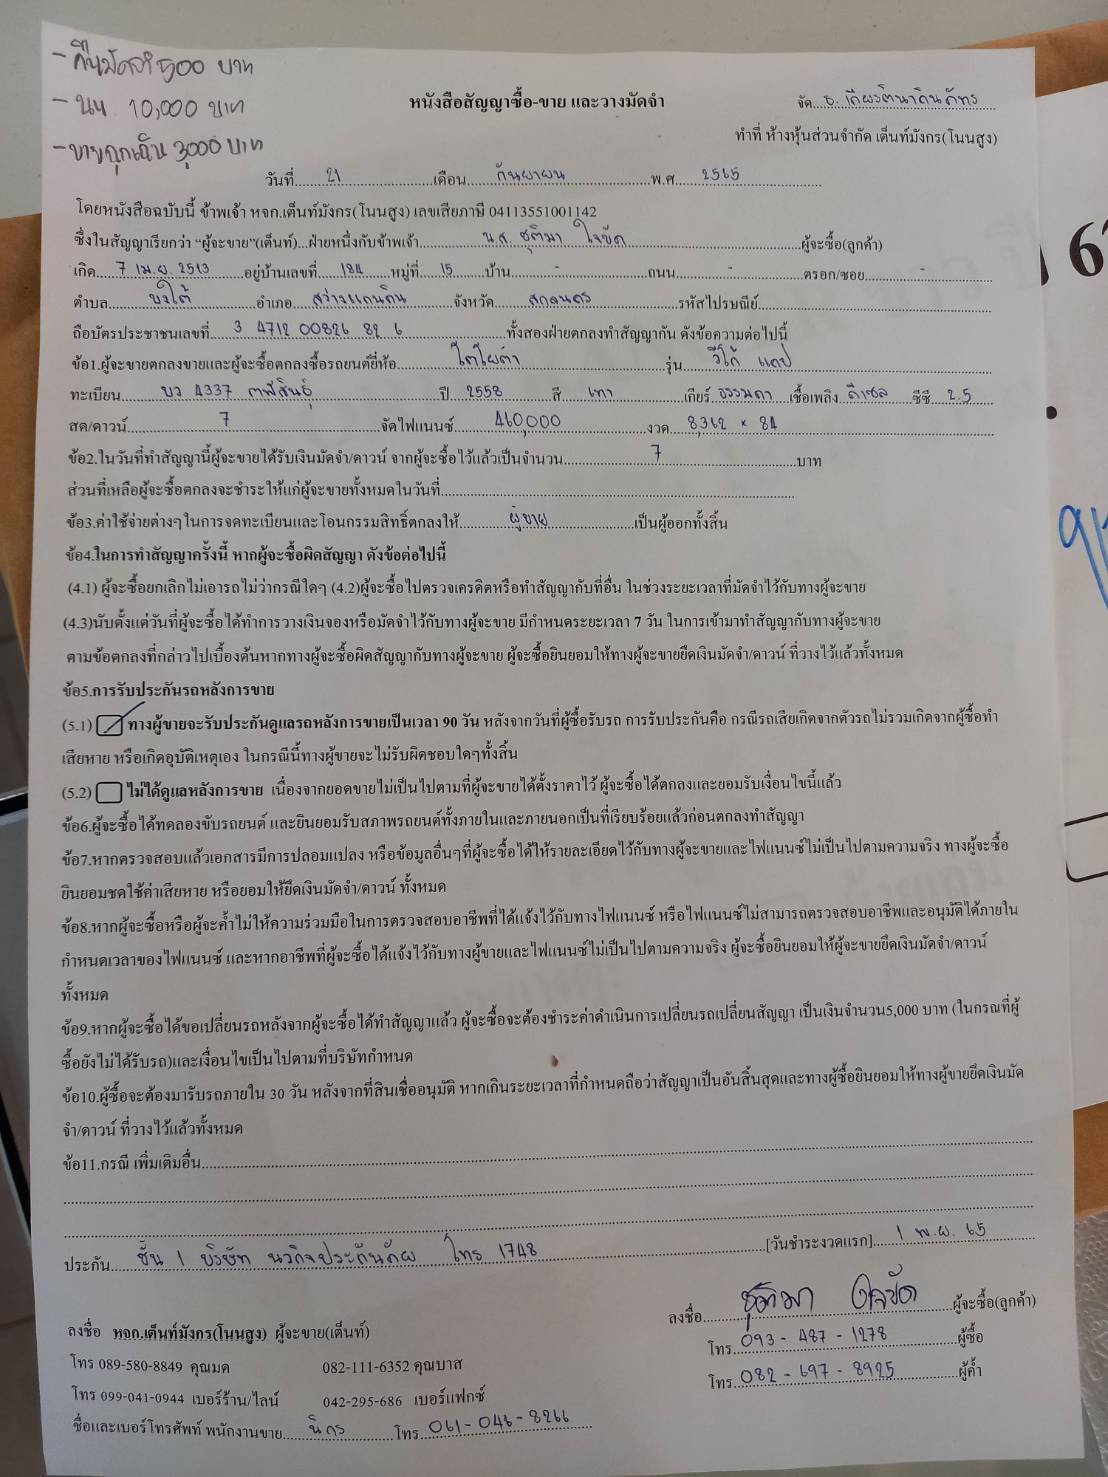 - คืนมัดจำ 500 บาท
- นน 10,000 บาท
- ขายฉุกเฉิน 3,000 บาท
หนังสือสัญญาซื้อ-ขาย และวางมัดจำ
จัด ธ.เกียรตินาคินภัทร
ทำที่ ห้างหุ้นส่วนจำกัด เต็นท์มังกร(โนนสูง)
วันที่ 21 เดือน กันยายน พ.ศ 2565
โดยหนังสือฉบับนี้ ข้าพเจ้า หจก.เต็นท์มังกร(โนนสูง) เลขเสียภาษี 04113551001142
ซึ่งในสัญญาเรียกว่า “ผู้จะขาย”(เต็นท์)...ฝ่ายหนึ่งกับข้าพเจ้า น.ส. ชุติมา ใจขัด ผู้จะซื้อ(ลูกค้า)
เกิด 7 เม.ย. 2513 อยู่บ้านเลขที่ 184 หมู่ที่ 15 บ้าน - ถนน - ตรอก/ซอย -
ตำบล บงใต้ อำเภอ สว่างแดนดิน จังหวัด สกลนคร รหัสไปรษณีย์
ถือบัตรประชาชนเลขที่ 3 4712 00826 82 6 ทั้งสองฝ่ายตกลงทำสัญญากัน ดังข้อความต่อไปนี้
ข้อ1.ผู้จะขายตกลงขายและผู้จะซื้อตกลงซื้อรถยนต์ยี่ห้อ โตโยต้า รุ่น วีโก้ แคป
ทะเบียน บว 4337 กาฬสินธุ์ ปี 2558 สี เทา เกียร์ ธรรมดา เชื้อเพลิง ดีเซล ซีซี 2.5
สด/ดาวน์ 7 จัดไฟแนนซ์ 460,000 งวด 8,362 x 84
ข้อ2.ในวันที่ทำสัญญานี้ผู้จะขายได้รับเงินมัดจำ/ดาวน์ จากผู้จะซื้อไว้แล้วเป็นจำนวน 7 บาท
ส่วนที่เหลือผู้จะซื้อตกลงจะชำระให้แก่ผู้จะขายทั้งหมดในวันที่
ข้อ3.ค่าใช้จ่ายต่างๆในการจดทะเบียนและโอนกรรมสิทธิ์ตกลงให้ ผู้ขาย เป็นผู้ออกทั้งสิ้น
ข้อ4.ในการทำสัญญาครั้งนี้ หากผู้จะซื้อผิดสัญญา ดังข้อต่อไปนี้
(4.1) ผู้จะซื้อยกเลิกไม่เอารถไม่ว่ากรณีใดๆ (4.2)ผู้จะซื้อไปตรวจเครดิตหรือทำสัญญากับที่อื่น ในช่วงระยะเวลาที่มัดจำไว้กับทางผู้จะขาย
(4.3)นับตั้งแต่วันที่ผู้จะซื้อได้ทำการวางเงินจองหรือมัดจำไว้กับทางผู้จะขาย มีกำหนดระยะเวลา 7 วัน ในการเข้ามาทำสัญญากับทางผู้จะขาย
ตามข้อตกลงที่กล่าวไปเบื้องต้นหากทางผู้จะซื้อผิดสัญญากับทางผู้จะขาย ผู้จะซื้อยินยอมให้ทางผู้จะขายยึดเงินมัดจำ/ดาวน์ ที่วางไว้แล้วทั้งหมด
ข้อ5.การรับประกันรถหลังการขาย
(5.1) ทางผู้ขายจะรับประกันดูแลรถหลังการขายเป็นเวลา 90 วัน หลังจากวันที่ผู้ซื้อรับรถ การรับประกันคือ กรณีรถเสียเกิดจากตัวรถไม่รวมเกิดจากผู้ซื้อทำ
เสียหาย หรือเกิดอุบัติเหตุเอง ในกรณีนี้ทางผู้ขายจะไม่รับผิดชอบใดๆทั้งสิ้น
(5.2) ไม่ได้ดูแลหลังการขาย เนื่องจากยอดขายไม่เป็นไปตามที่ผู้จะขายได้ตั้งราคาไว้ ผู้จะซื้อได้ตกลงและยอมรับเงื่อนไขนี้แล้ว
ข้อ6.ผู้จะซื้อได้ทดลองขับรถยนต์ และยินยอมรับสภาพรถยนต์ทั้งภายในและภายนอกเป็นที่เรียบร้อยแล้วก่อนตกลงทำสัญญา
ข้อ7.หากตรวจสอบแล้วเอกสารมีการปลอมแปลง หรือข้อมูลอื่นๆที่ผู้จะซื้อได้ให้รายละเอียดไว้กับทางผู้จะขายและไฟแนนซ์ไม่เป็นไปตามความจริง ทางผู้จะซื้อ
ยินยอมชดใช้ค่าเสียหาย หรือยอมให้ยึดเงินมัดจำ/ดาวน์ ทั้งหมด
ข้อ8.หากผู้จะซื้อหรือผู้จะค้ำไม่ให้ความร่วมมือในการตรวจสอบอาชีพที่ได้แจ้งไว้กับทางไฟแนนซ์ หรือไฟแนนซ์ไม่สามารถตรวจสอบอาชีพและอนุมัติได้ภายใน
กำหนดเวลาของไฟแนนซ์ และหากอาชีพที่ผู้จะซื้อได้แจ้งไว้กับทางผู้ขายและไฟแนนซ์ไม่เป็นไปตามความจริง ผู้จะซื้อยินยอมให้ผู้จะขายยึดเงินมัดจำ/ดาวน์
ทั้งหมด
ข้อ9.หากผู้จะซื้อได้ขอเปลี่ยนรถหลังจากผู้จะซื้อได้ทำสัญญาแล้ว ผู้จะซื้อจะต้องชำระค่าดำเนินการเปลี่ยนรถเปลี่ยนสัญญา เป็นเงินจำนวน5,000 บาท (ในกรณที่ผู้
ซื้อยังไม่ได้รับรถ)และเงื่อนไขเป็นไปตามที่บริษัทกำหนด
ข้อ10.ผู้ซื้อจะต้องมารับรถภายใน 30 วัน หลังจากที่สินเชื่ออนุมัติ หากเกินระยะเวลาที่กำหนดถือว่าสัญญาเป็นอันสิ้นสุดและทางผู้ซื้อยินยอมให้ทางผู้ขายยึดเงินมัด
จำ/ดาวน์ ที่วางไว้แล้วทั้งหมด
ข้อ11.กรณี เพิ่มเติมอื่น
ประกัน ชั้น 1 บริษัท นวกิจประกันภัย โทร 1748 [วันชำระงวดแรก] 1 พ.ย. 65
ลงชื่อ ชุติมา ใจขัด ผู้จะซื้อ(ลูกค้า)
ลงชื่อ หจก.เต็นท์มังกร(โนนสูง) ผู้จะขาย(เต็นท์)
โทร 093-487-1278 ผู้ซื้อ
โทร 089-580-8849 คุณมด 082-111-6352 คุณบาส
โทร 082-697-8925 ผู้ค้ำ
โทร 099-041-0944 เบอร์ร้าน/ไลน์ 042-295-686 เบอร์แฟกซ์
ชื่อและเบอร์โทรศัพท์ พนักงานขาย นิกร โทร 061-046-8266